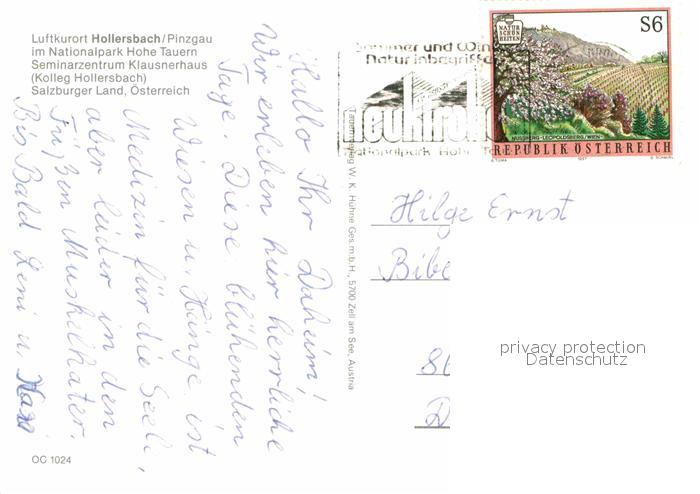 Luftkurort Hollersbach/Pinzgau
im Nationalpark Hohe Tauern
Seminarzentrum Klausnerhaus
(Kolleg Hollersbach)
Salzburger Land, Österreich
Hallo Ihr Daheim!
Wir erleben hier herrliche
Tage. Diese blühenden
Wiesen u. Hänge ist
Medizin für die Seele,
aber leider in den
Füßen Muskelkater.
Bis Bald Leni u. Haxi
OC 1024
W. K. Hühne Ges.m.b.H., 5700 Zell am See, Austria
Sommer und Win
Natur inbegriffe
neukirch
ationalpark Hohe
NATUR
SCHÖN
HEITEN
S6
NUSSBERG-LEOPOLDSBERG/WIEN
REPUBLIK ÖSTERREICH
A.TUMA 1997
Hilge Ernst
Bibe
St
D
privacy protection
Datenschutz